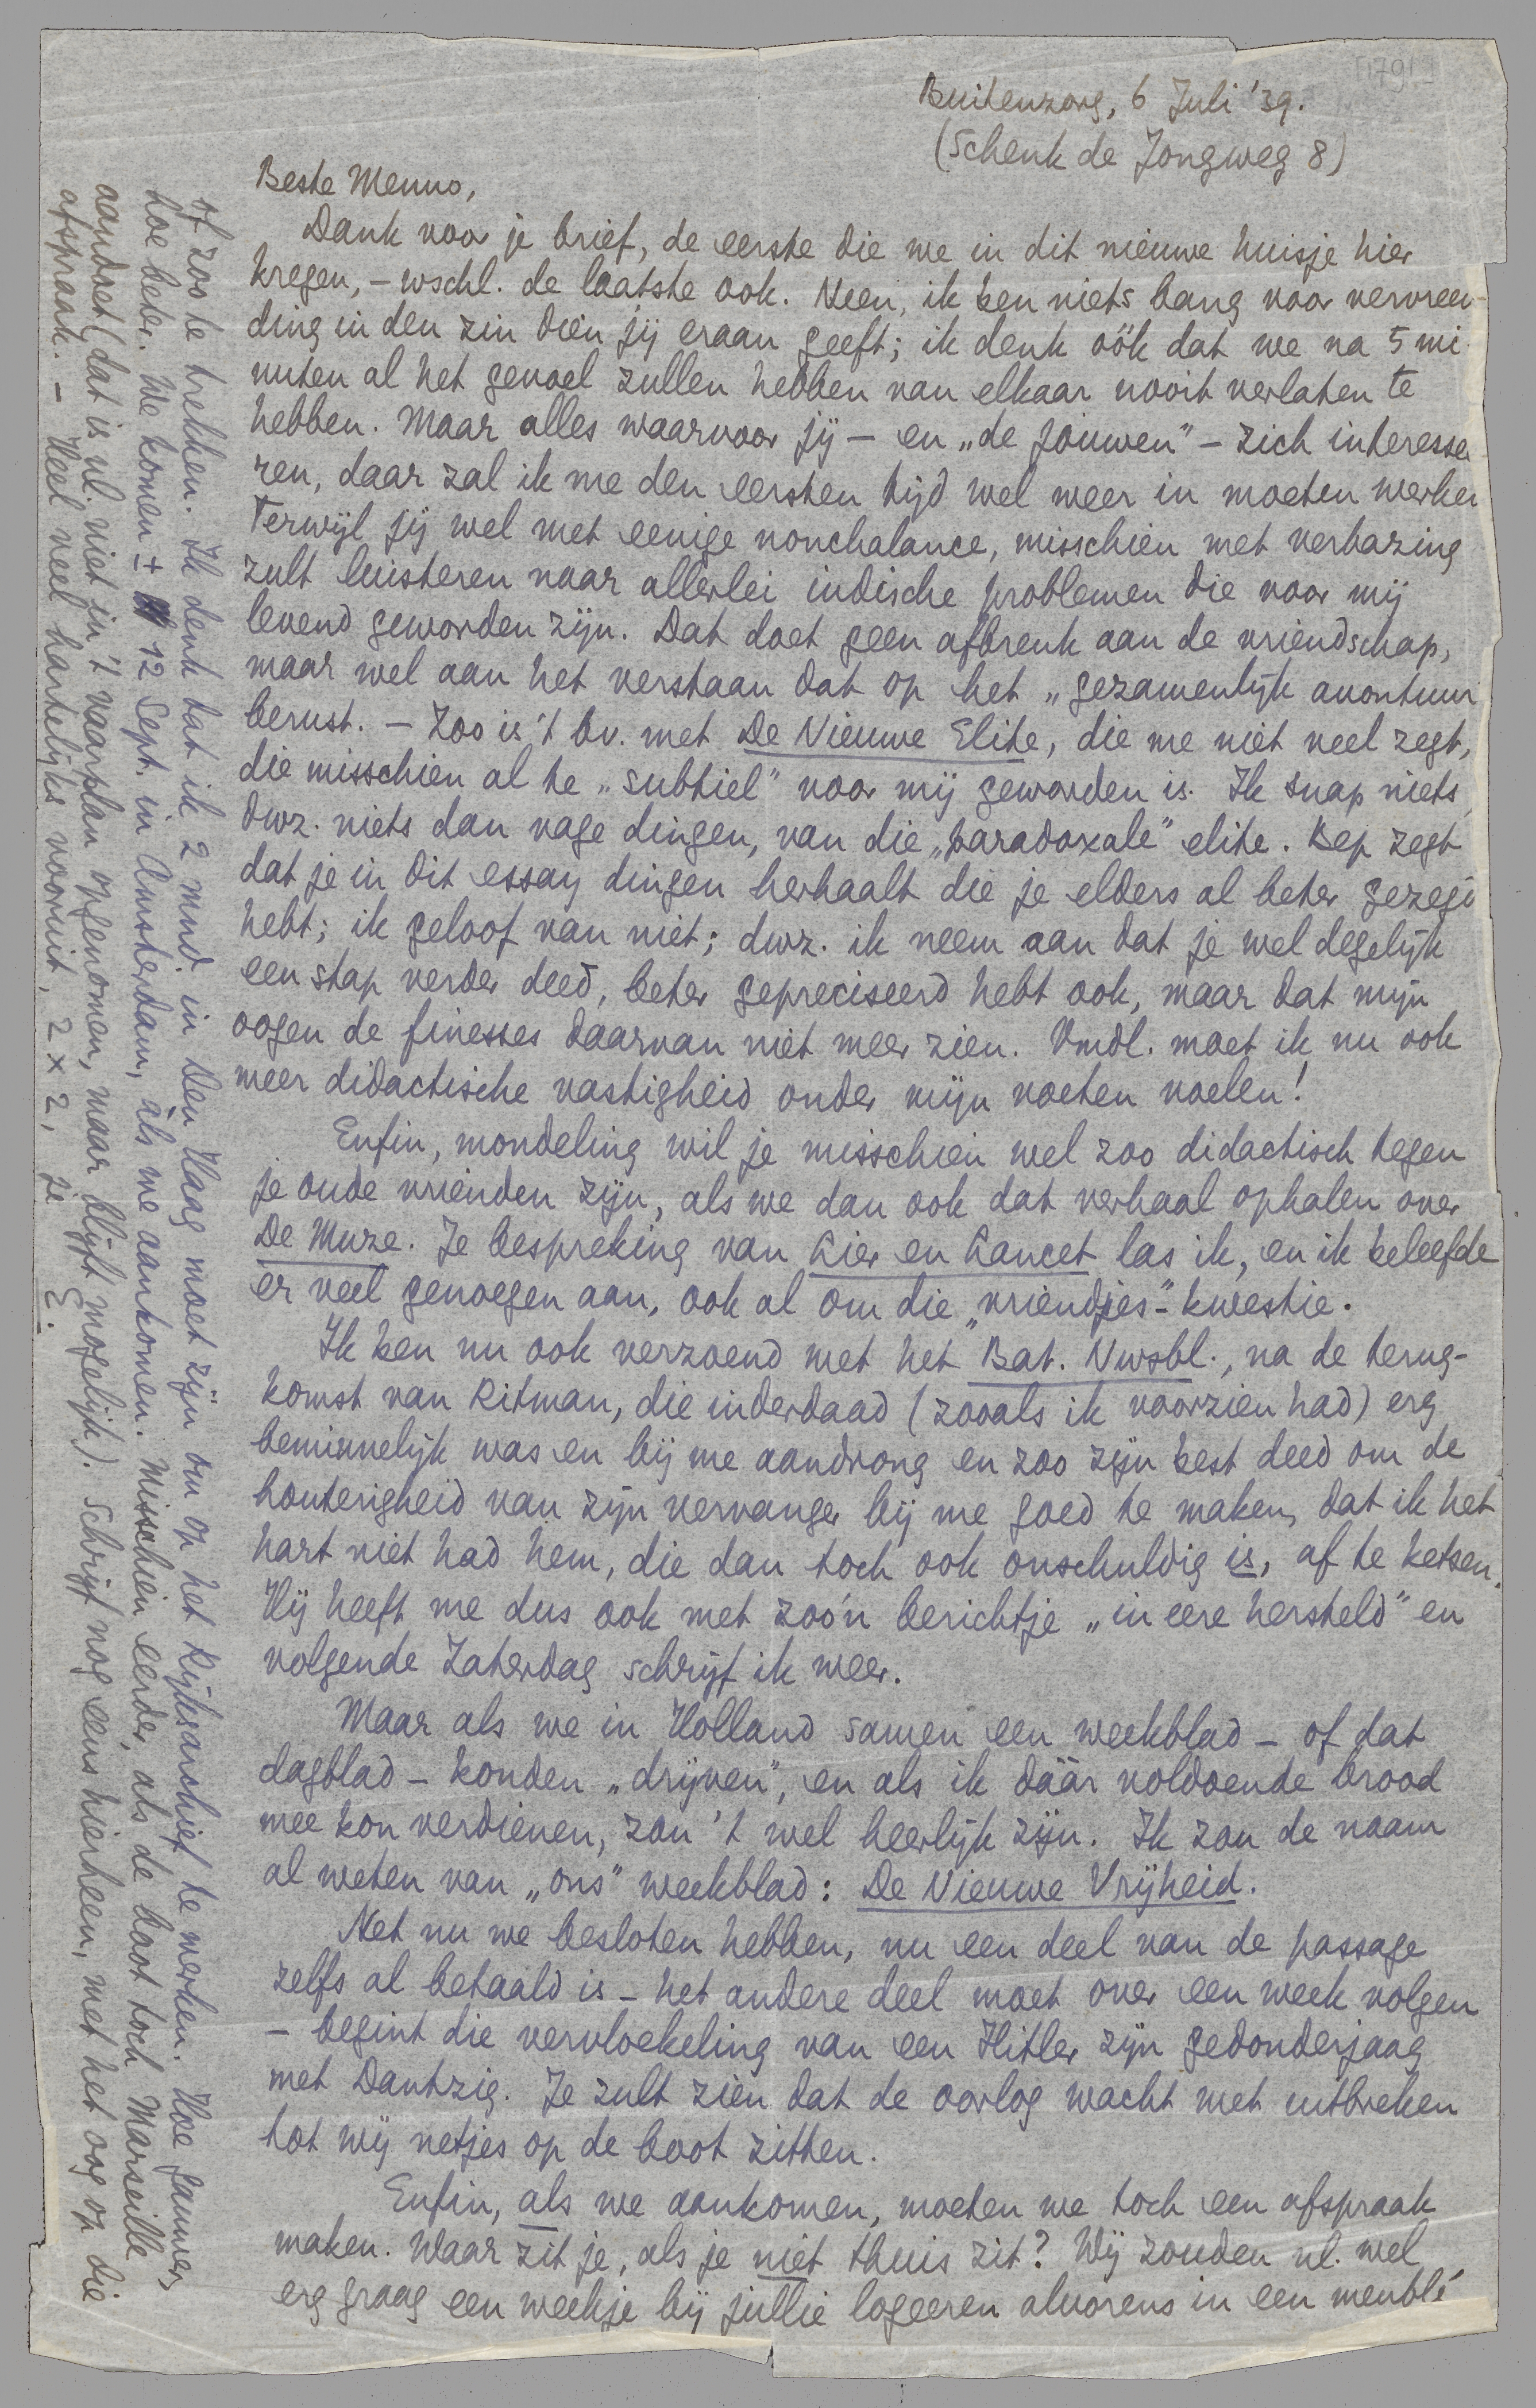 [1791]
Buitenzorg, 6 Juli '39.
(Schenk de Jongweg 8)
Beste Menno,
Dank voor je brief, de eerste die we in dit nieuwe huisje hier
kregen, – wschl. de laatste ook. Neen, ik ben niets bang voor vervreem-
ding in den zin dien jij eraan geeft; ik denk óók dat we na 5 mi-
nuten al het gevoel zullen hebben van elkaar nooit verlaten te
hebben. Maar alles waarvoor jij – en „de jouwen” – zich interessee-
ren, daar zal ik me den eersten tijd wel weer in moeten werken
Terwijl jij wel met eenige nonchalance, misschien met verbazing
zult luisteren naar allerlei indische problemen die voor mij
levend geworden zijn. Dat doet geen afbreuk aan de vriendschap,
maar wel aan het verstaan dat op het „gezamenlijk avontuur
berust. – Zoo is 't bv. met De Nieuwe Elite, die me niet veel zegt,
die misschien al te „subtiel” voor mij geworden is. Ik snap niets,
dwz. niets dan vage dingen, van die „paradoxale” elite. Bep zegt
dat je in dit essay dingen herhaalt die je elders al beter gezegd
hebt; ik geloof van niet; dwz. ik neem aan dat je wel degelijk
een stap verder deed, beter gepreciseerd hebt ook, maar dat mijn
oogen de finesses daarvan niet meer zien. Vmdl. moet ik nu ook
meer didactische vastigheid onder mijn voeten voelen!
Enfin, mondeling wil je misschien wel zoo didactisch tegen
je oude vrienden zijn, als we dan ook dat verhaal ophalen over
De Muze. Je bespreking van Lier en Lancet las ik, en ik beleefde
er veel genoegen aan, ook al om die „vriendjes”-kwestie.
Ik ben nu ook verzoend met het Bat. Nwsbl., na de terug-
komst van Ritman, die inderdaad (zooals ik voorzien had) erg
beminnelijk was en bij me aandrong en zoo zijn best deed om de
houterigheid van zijn vervanger bij me goed te maken, dat ik het
hart niet had hem, die dan toch ook onschuldig is, af te ketsen.
Hij heeft me dus ook met zoo'n berichtje „in eere hersteld” en
volgende Zaterdag schrijf ik weer.
Maar als we in Holland samen een weekblad – of dat
dagblad – konden „drijven”, en als ik dáár voldoende brood
mee kon verdienen, zou 't wel heerlijk zijn. Ik zou de naam
al weten van „ons” weekblad: De Nieuwe Vrijheid.
Net nu we besloten hebben, nu een deel van de passage
zelfs al betaald is – het andere deel moet over een week volgen
– begint die vervloekeling van een Hitler zijn gedonderjaag
met Dantzig. Je zult zien dat de oorlog wacht met uitbreken
tot wij netjes op de boot zitten.
Enfin, als we aankomen, moeten we toch een afspraak
maken. Waar zit je, als je niet thuis zit? Wij zouden nl. wel
erg graag een weekje bij jullie logeeren alvorens in een meublé
of zoo te trekken. Ik denk dat ik 2 mnd. in Den Haag moet zijn om op het Rijksarchief te werken. Hoe gauwer
hoe beter. We komen ± 12 Sept. in Amsterdam, àls we aankomen. Misschien eerder, als de boot toch Marseille
aandoet (dat is nl. niet in 't vaarplan opgenomen, maar blijft mogelijk). Schrijf nog eens hierheen, met het oog op die
afspraak. – Heel veel hartelijks vooruit, 2 x 2, je E.